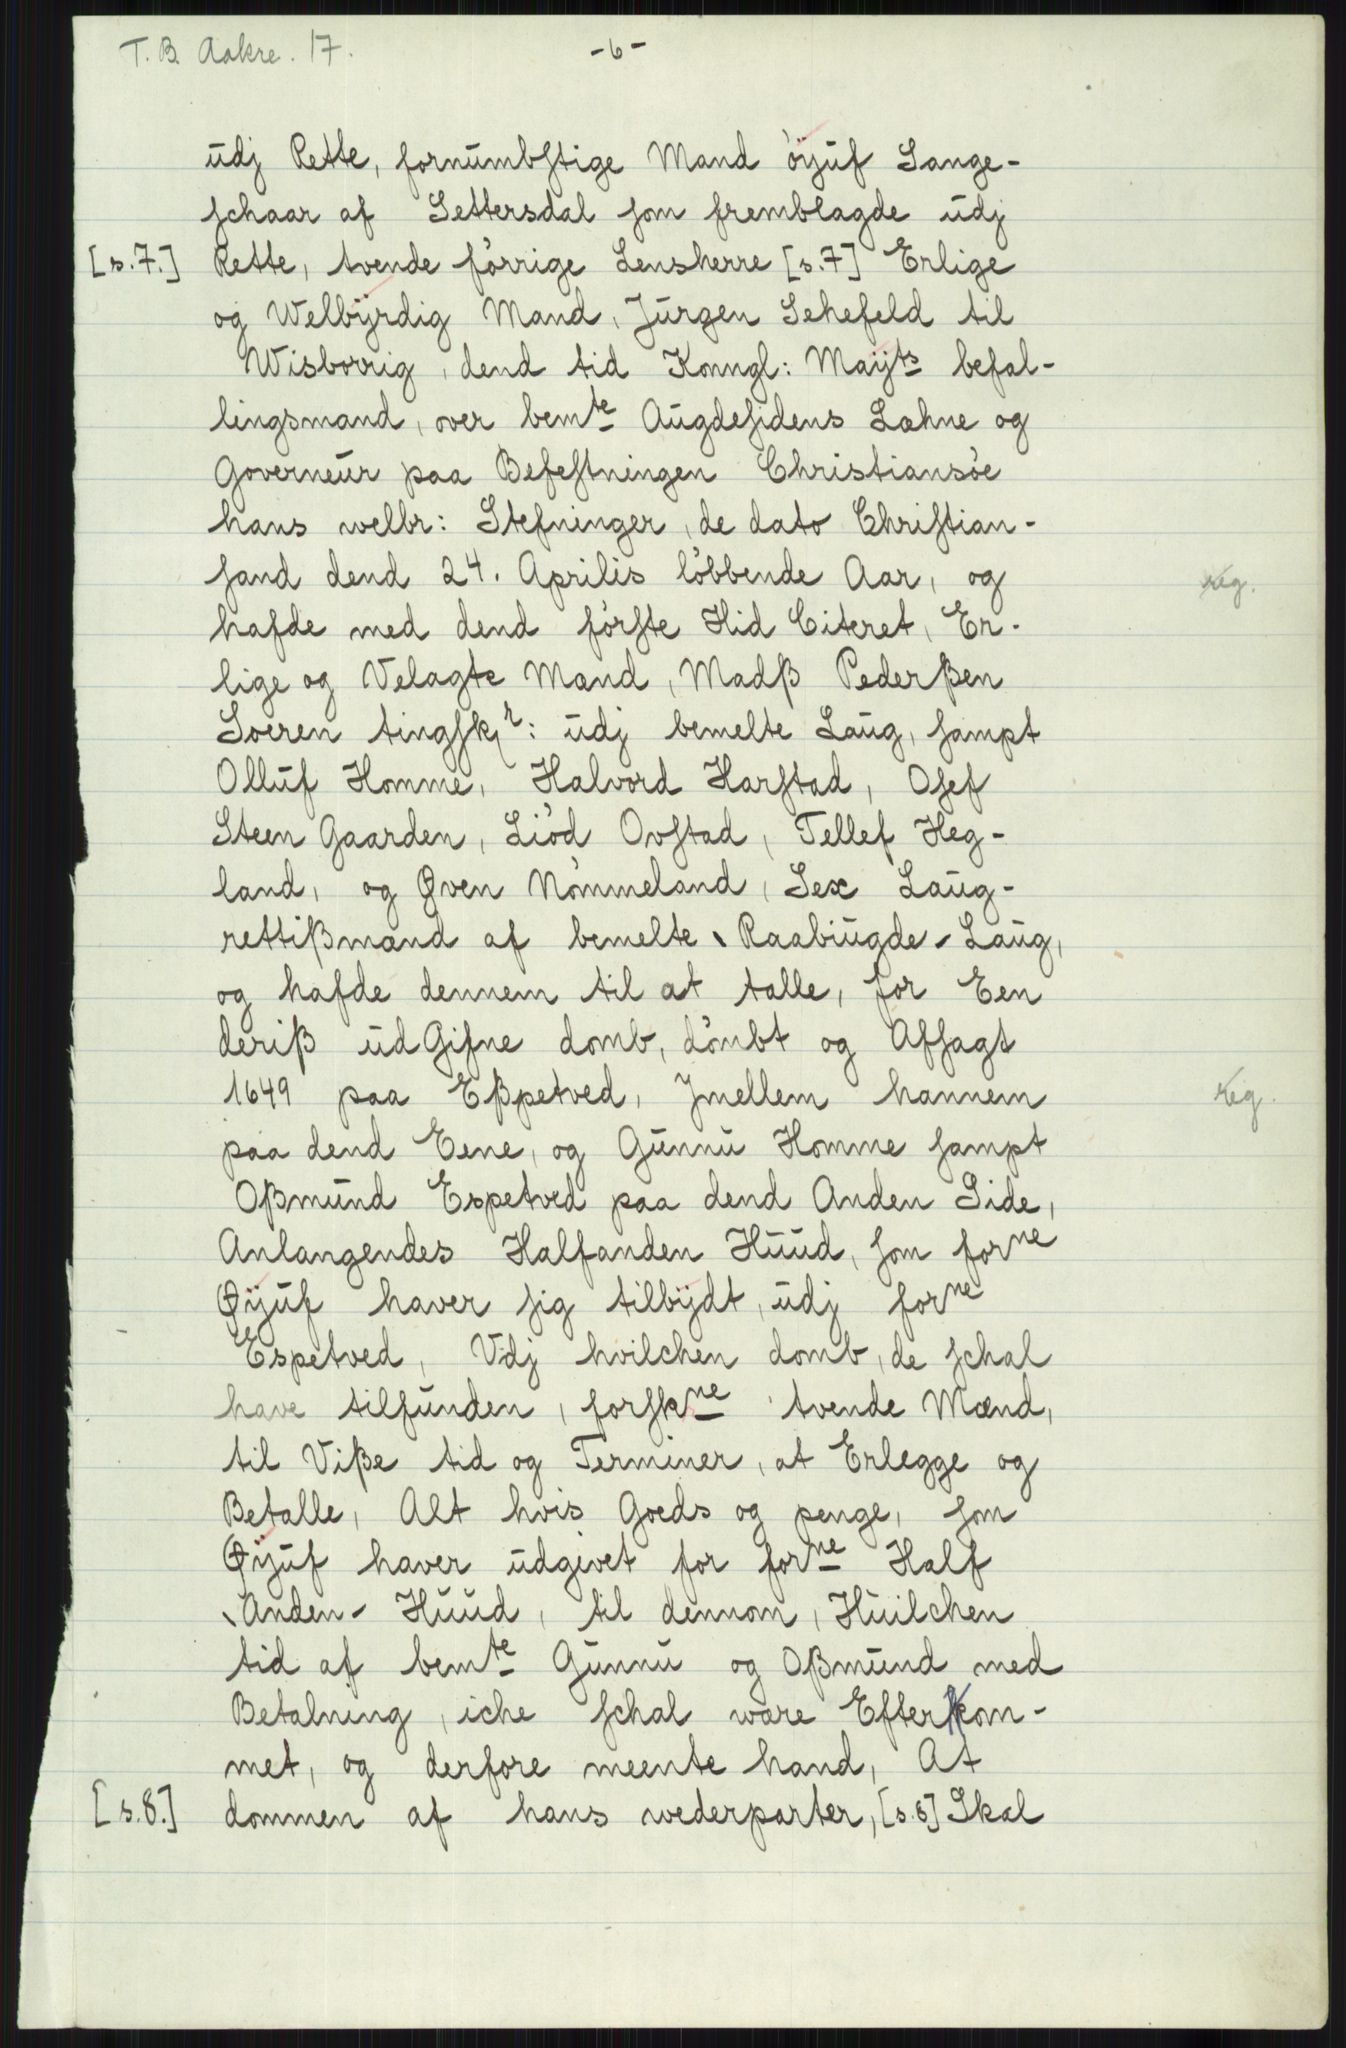 T.B. Aakre. 17.
-6-
udj Rette, fornumbstige Mand öÿuf Lange-
schaar af Settersdal som fremblagde udj
[s.7.] Rette, tvende förrige Lensherre [s.7] Erlige
og Welbÿrdig Mand, Jürgen Sehefeld til
Wisborrig, dend tid Konngl: Maÿts befal-
lingsmand, over bemte Augdesidens Læhne og
Governeur paa Befestningen Christiansöe
hans welbr: Stefninger, de dato Christian-
sand dend 24. Aprilis löbbende Aar, og
reg.
hafde med dend förste Hid Citeret, Er-
lige og Velagte Mænd, Madß Pederßen
Soeren tingskr: udj bemelte Laug, sampt
Olluf Homme, Halvord Harstad, Osef
Steen Gaarden, Liöd Ovstad, Tellef Heg-
land, og Øven Nömmeland, Sex Laug-
rettißmænd af bemelte Raabiugde-Laug,
og hafde dennem til at talle, for Een
deriß udGifne domb, dömbt og Afsagt
1649 paa Eßpetved, Jmellem hannem
reg.
paa dend Eene, og Gunnu Homme sampt
Oßmund Espetved paa dend Anden Side,
Anlangendes Halfanden Huud, som forne
Øÿuf haver sig tilbÿdt, udj forne
Espetved, Vdj hvilchen domb, de schal
have tilfunden, forskne tvende Mænd,
til Viße tid og Terminer, at Erlegge og
Betalle, Alt hvis Goeds og penge, som
Øÿuf haver udgivet for forne Half
Anden- Huud, til dennom, Huilchen
tid af bemte Gunnu og Oßmund med
Betalning, iche schal være Efterkom-
met, og derfore meente hand, At
[s.8.] dommen af hans wederparter, [s.8] Skal